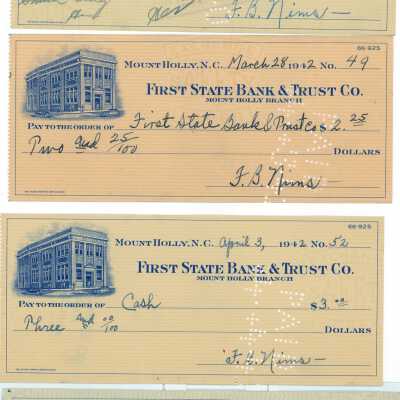 F. B. Nims
66-925
MOUNT HOLLY, N.C. March 28 1942 No. 49
FIRST STATE BANK & TRUST CO.
MOUNT HOLLY BRANCH
PAY TO THE ORDER OF First State Bank & Trust Co $ 2.25
Two and 25/100 DOLLARS
F. B. Nims
66-925
MOUNT HOLLY, N.C. April 3, 1942 No. 52
FIRST STATE BANK & TRUST CO.
MOUNT HOLLY BRANCH
PAY TO THE ORDER OF Cash $3.00
Three and 00/100 DOLLARS
F. B. Nims